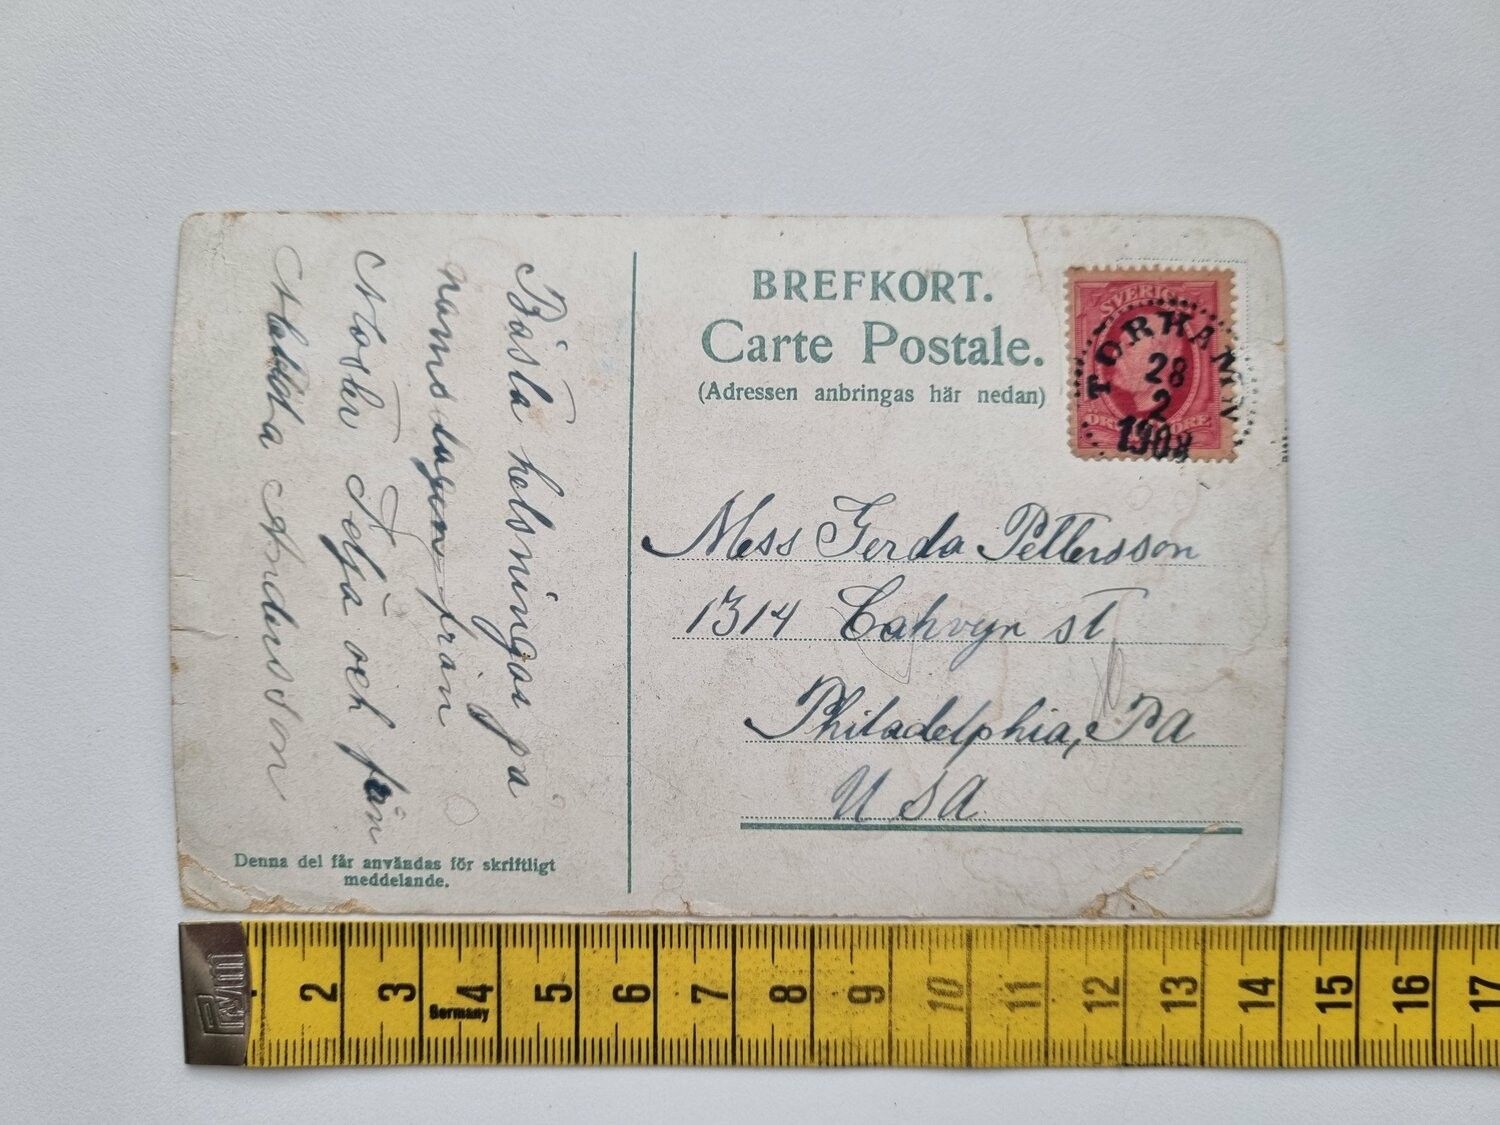 BREFKORT.
Carte Postale.
(Adressen anbringas här nedan)
SVERIGE
TORHAMN
28
2
1908
Mess Gerda Pettersson
1314
st
Philadelphia, PA
USA
Bästa helsningar på
namsdagen från
Moster Tetja och från
Mabbita Andersson
Denna del får användas för skriftligt
meddelande.
Prym
Germany
2 3 4 5 6 7 8 9 10 11 12 13 14 15 16 17